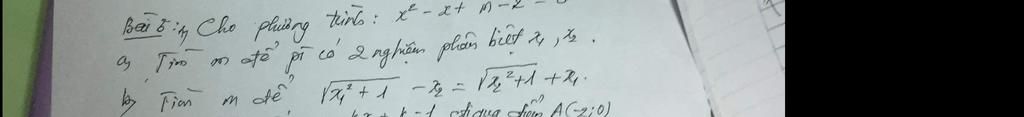 Bài 5: 1, Cho phương trình: x² - x + m - 2 =
a, Tìm m để pt có 2 nghiệm phân biệt x₁, x₂.
b, Tìm m để √(x₁² + 1) - x₂ = √(x₂² + 1) + x₁.
k - 1 đi qua điểm A(-2; 0)